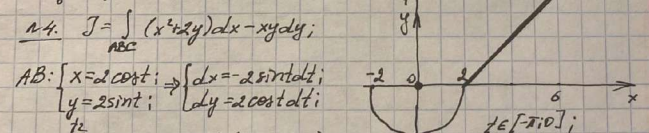 н4. J = ∫_{ABC} (x²+2y)dx - xydy;
AB: { x = 2cost; y = 2sint; ⇒ { dx = -2sintdt; dy = 2costdt;
t₂
y
-2 0 2 6 x
t∈[-π;0];